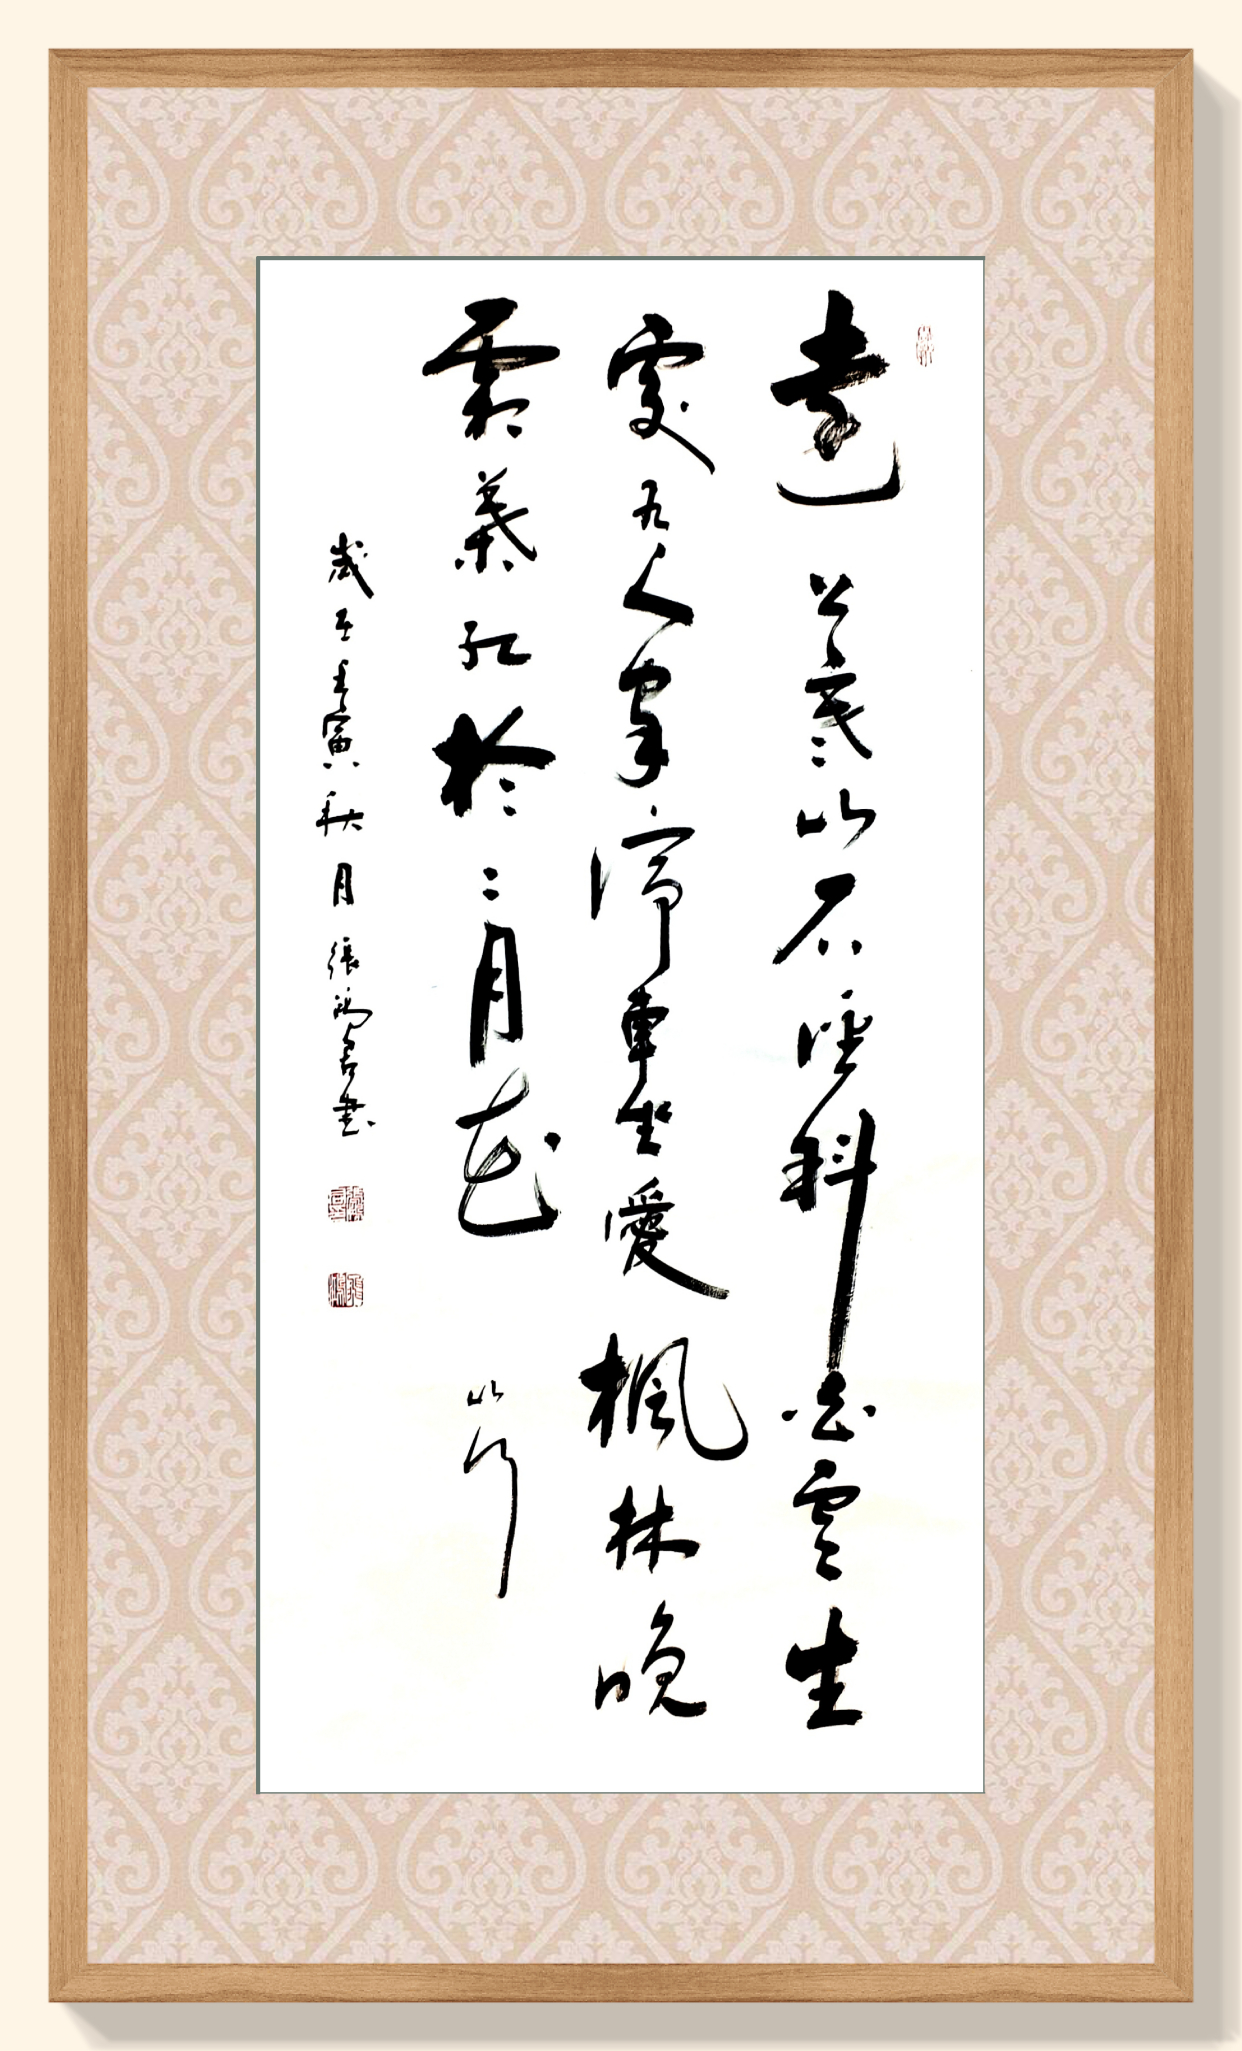 遠上寒山石徑斜白雲生
處有人家停車坐愛楓林晚
霜葉紅於二月花 山行
歲在壬寅秋月張鴻書